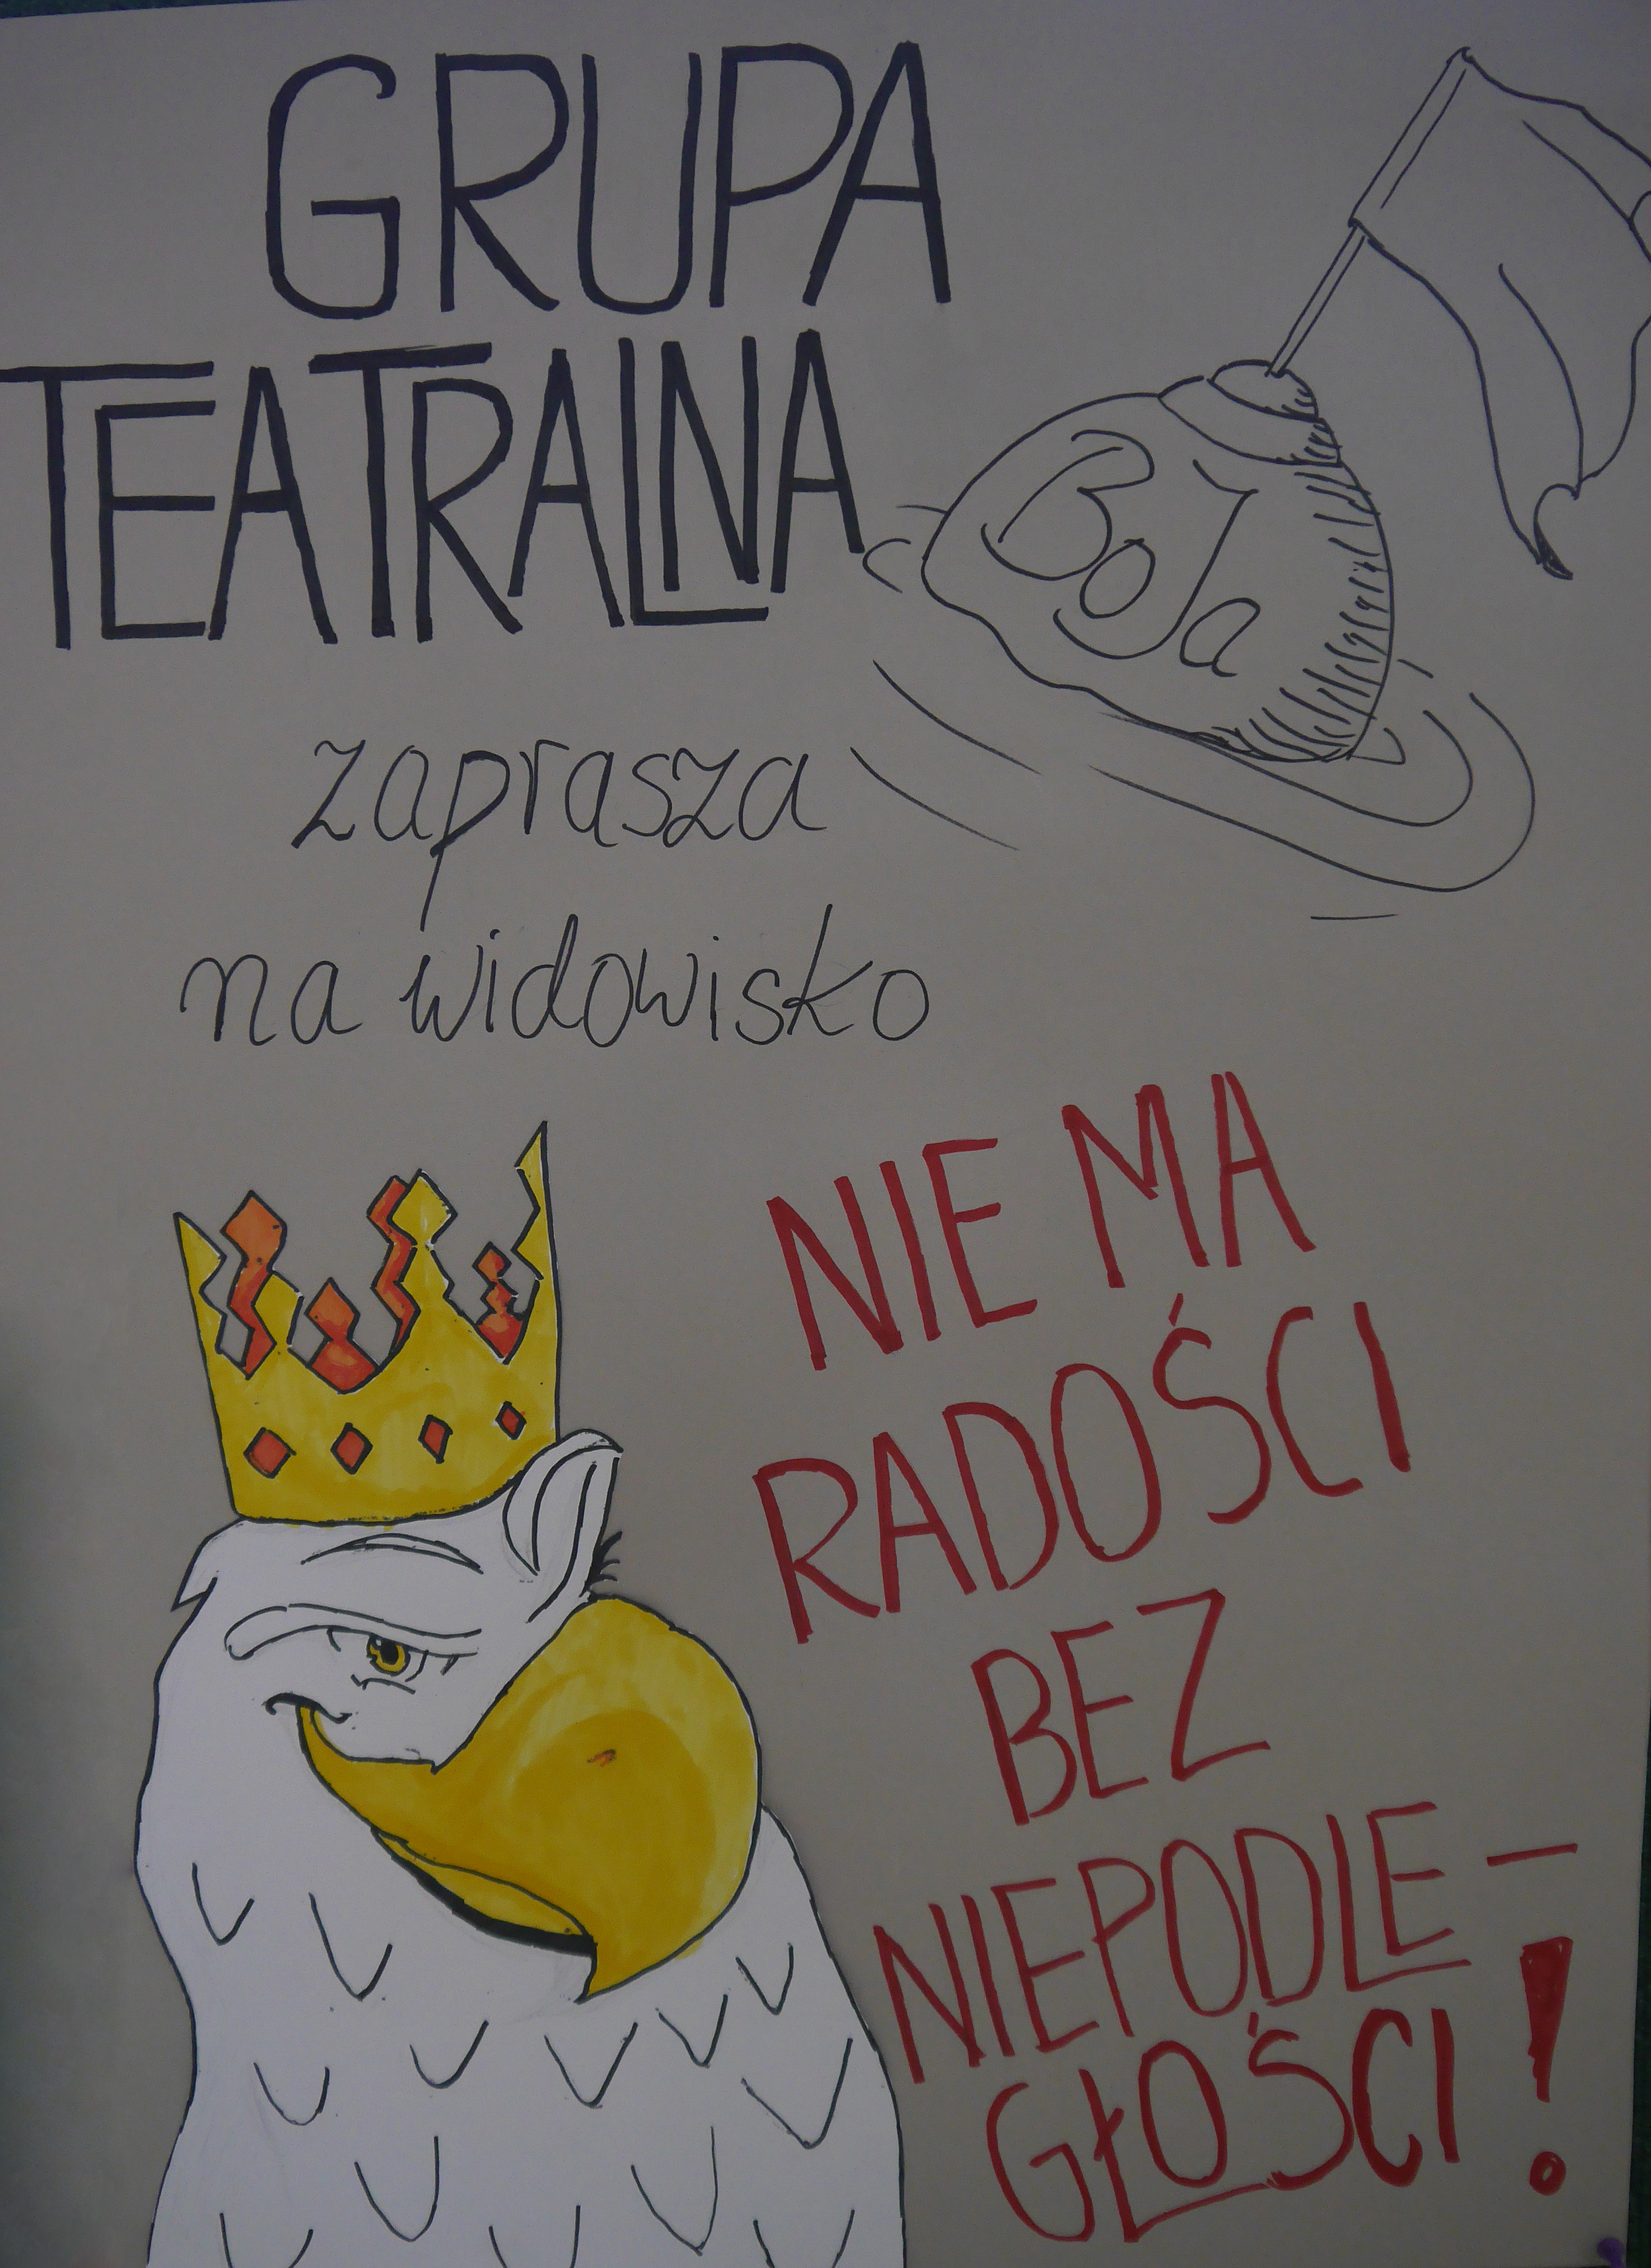 GRUPA
TEATRALNA
BoJa
zaprasza
na widowisko
NIE MA
RADOŚCI
BEZ
NIEPODLE-
GŁOŚCI!